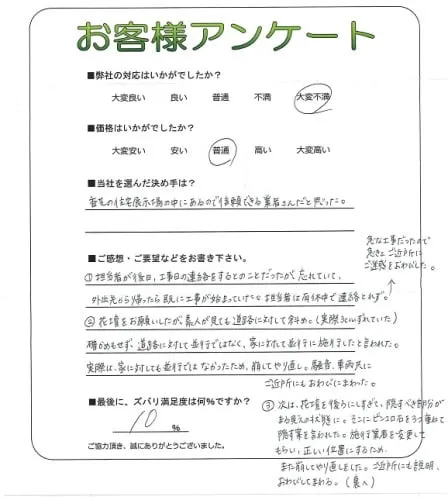 お客様アンケート
■弊社の対応はいかがでしたか?
大変良い 良い 普通 不満 大変不満
■価格はいかがでしたか?
大変安い 安い 普通 高い 大変高い
■当社を選んだ決め手は?
住宅展示場の中にあるので信頼できる業者さんだと思った。
■ご感想・ご要望などをお書き下さい。
急な工事だったので
急きょ、ご近所に
ご迷惑をおわびした。
① 担当者が後日、工事日の連絡をするとのことだったが、忘れていて、
外出先から帰ったら既に工事が始まっていた。担当者は有休中で連絡とれず。
② 花壇をお願いしたが、素人が見ても道路に対して斜め。(実際ずれていた)
確かめもせず、道路に対して並行ではなく、家に対して並行に施行したと言われた。
実際は、家に対しても並行ではなかったため、崩してやり直し。騒音、車両共に
ご近所にもおわびにまわった。
■最後に、ズバリ満足度は何%ですか?
10 %
ご協力頂き、誠にありがとうございました。
③ 次は、花壇を後ろにしすぎて、隠すべき部分が
まる見えの状態に。そこにピンコロ石をうつ重ねて
隠す案を言われた。施行業者を変更して
もらい、正しい位置にするため、
また崩してやり直しました。ご近所にも説明、
おわびしてまわる。(裏へ)